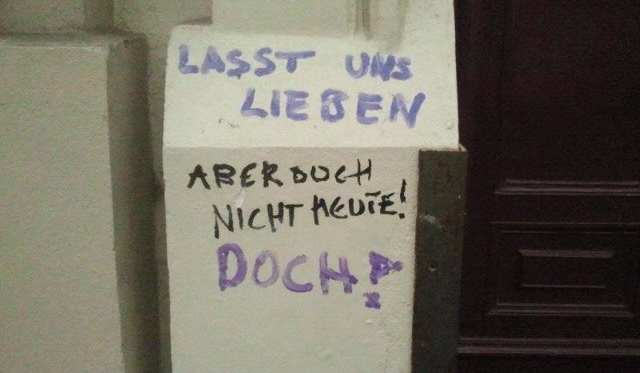 LASST UNS
LIEBEN
ABER DOCH
NICHT HEUTE!
DOCH!